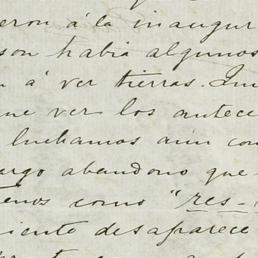 eron á la inaugur
son habia algunos
n á ver tierras. Inm
ue ver los antece
luchamos aun con
argo abandono que
Tenos como "res-
iente desaparece